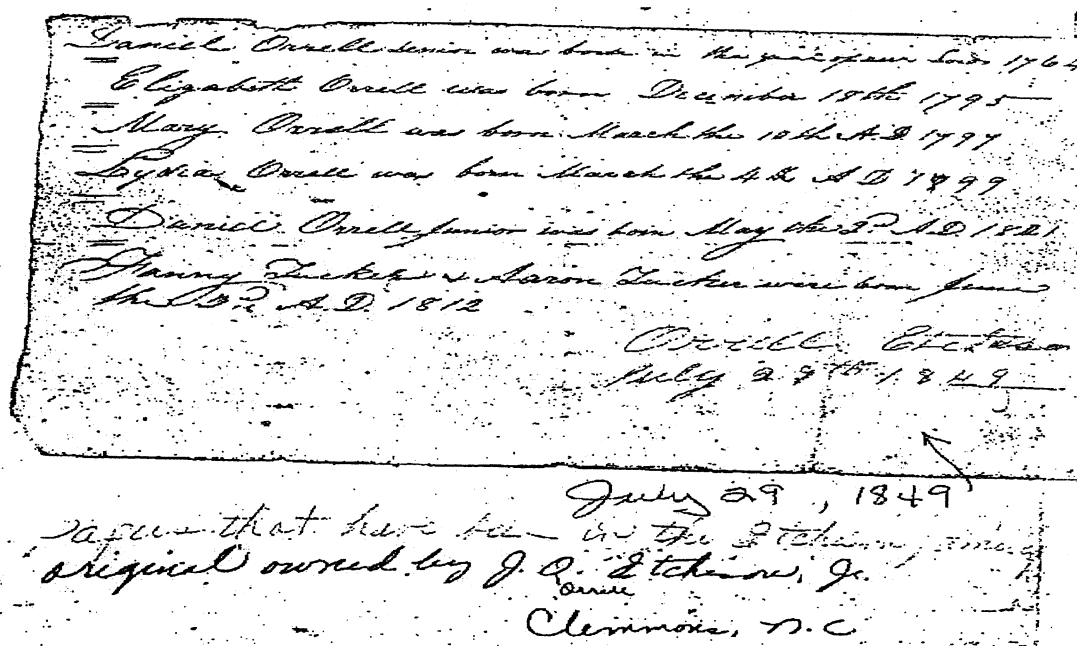 Daniel Orrell senior was born in the year of our Lord 1764
Elizabeth Orrell was born December 18th 1795
Mary Orrell was born March the 10th A.D 1797
Lydia Orrell was born March the 4th A D 1799
Daniel Orrell Junior was born May the 3d A.D. 1821
Fanny Tucker & Aaron Tucker were born June
the A.D. 1812
Orrell
July 29th 1849
July 29, 1849
papers that have been in the Etchison family
original owned by J. O. Etchison, Jr.
Orrell
Clemmons, N.C.